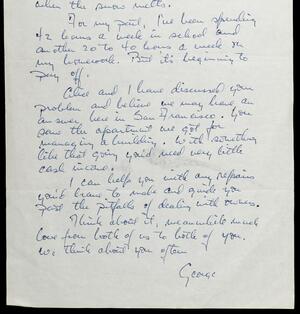 when the snow melts.
For my part, I've been spending
42 hours a week in school and
another 20 to 40 hours a week on
my homework. But it's beginning to
pay off.
and I have discussed your
problem and believe we may have an
answer, here in San Francisco. You
saw the apartment we got for
managing a building. With something
like that going you'd need very little
cash income.
I can help you with any repairs
you'd have to make and guide you
past the pitfalls of dealing with owners.
Think about it, meanwhile much
love from both of us to both of you.
We think about you often
George